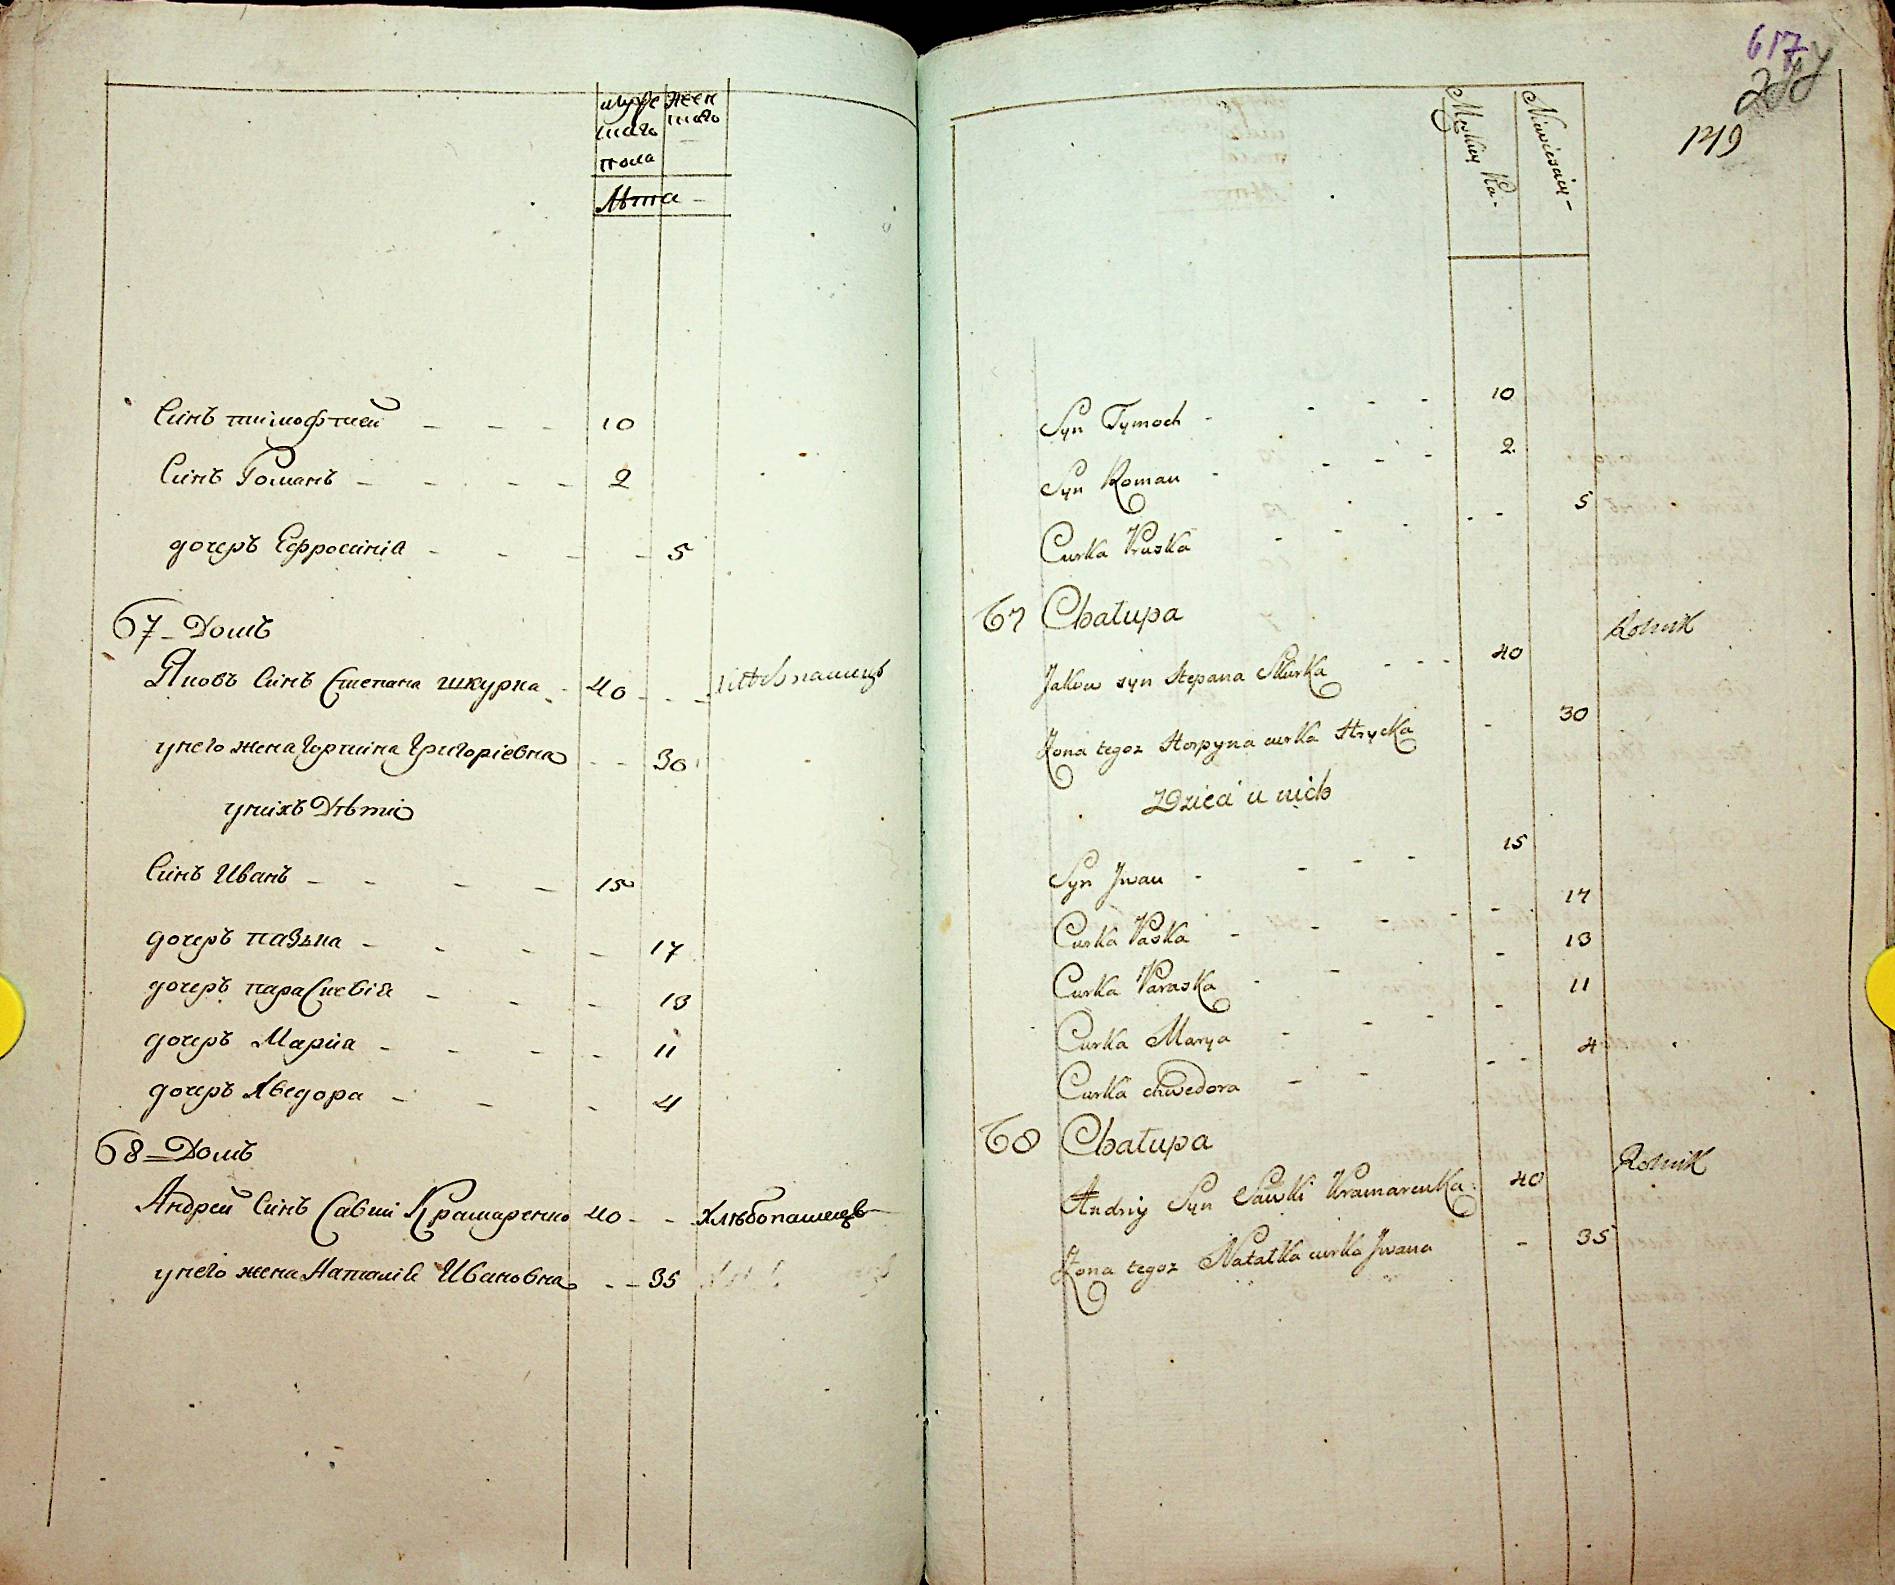 муже жен
шаго шаго
пола
Лѣта -
Синъ тимофтией - - - 10
Синъ Романъ - - - - 2
дочеръ Ефросиніа - - - - 5
67 - Домъ
Яковъ Синъ Степана шкурка - 40 - - хлѣбопашецъ
унего жена Горпина Григоріевна - - 30
унихъ Дѣти
Синъ Иванъ - - - - 15
дочеръ пазька - - - - 17
дочеръ параскевіа - - - 13
дочеръ Мариа - - - - 11
дочеръ Хведора - - - 4
68 - Домъ
Андрей Синъ Савки Крамаренко 40 - - Хлѣбопашецъ
унего жена Наталіа Ивановна - - 35
617
149
Męskiey Ka-
Niewieściey -
Syn Tymoch - - - - 10
Syn Roman - - - - 2
Curka Pruska - - - - - 5
67 Chałupa Rolnik
Jakow syn Stepana Skurka - - - 40
Żona tegoż Horpyna curka Hrycka - 30
Dzieci u nich
Syn Jwan - - - - 15
Curka Paska - - - - - 17
Curka Paraska - - - 13
Curka Marya - - - - 11
Curka chwedora - - - - 4
68 Chałupa Rolnik
Andriy Syn Sawki Kramarenka 40
Żona tegoż Natałka curka Jwana - 35